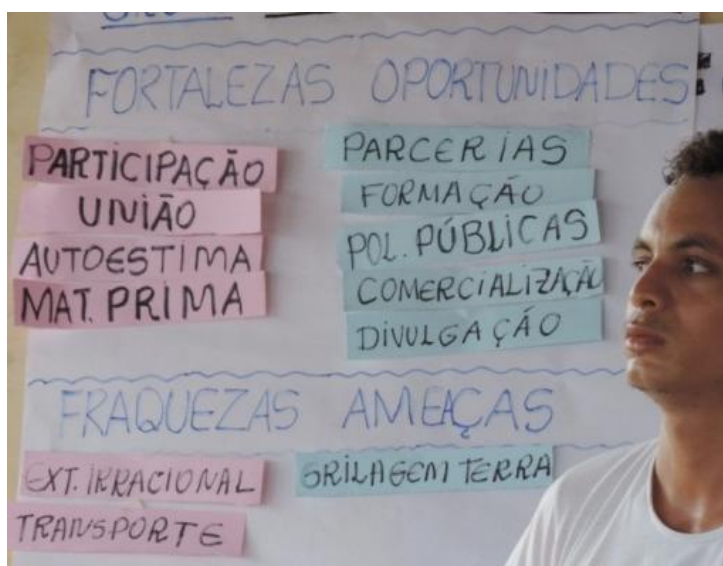 FORTALEZAS OPORTUNIDADES
PARTICIPAÇÃO
UNIÃO
AUTOESTIMA
MAT. PRIMA
PARCERIAS
FORMAÇÃO
POL. PÚBLICAS
COMERCIALIZAÇÃO
DIVULGAÇÃO
FRAQUEZAS AMEAÇAS
EXT. IRRACIONAL
TRANSPORTE
GRILAGEM TERRA